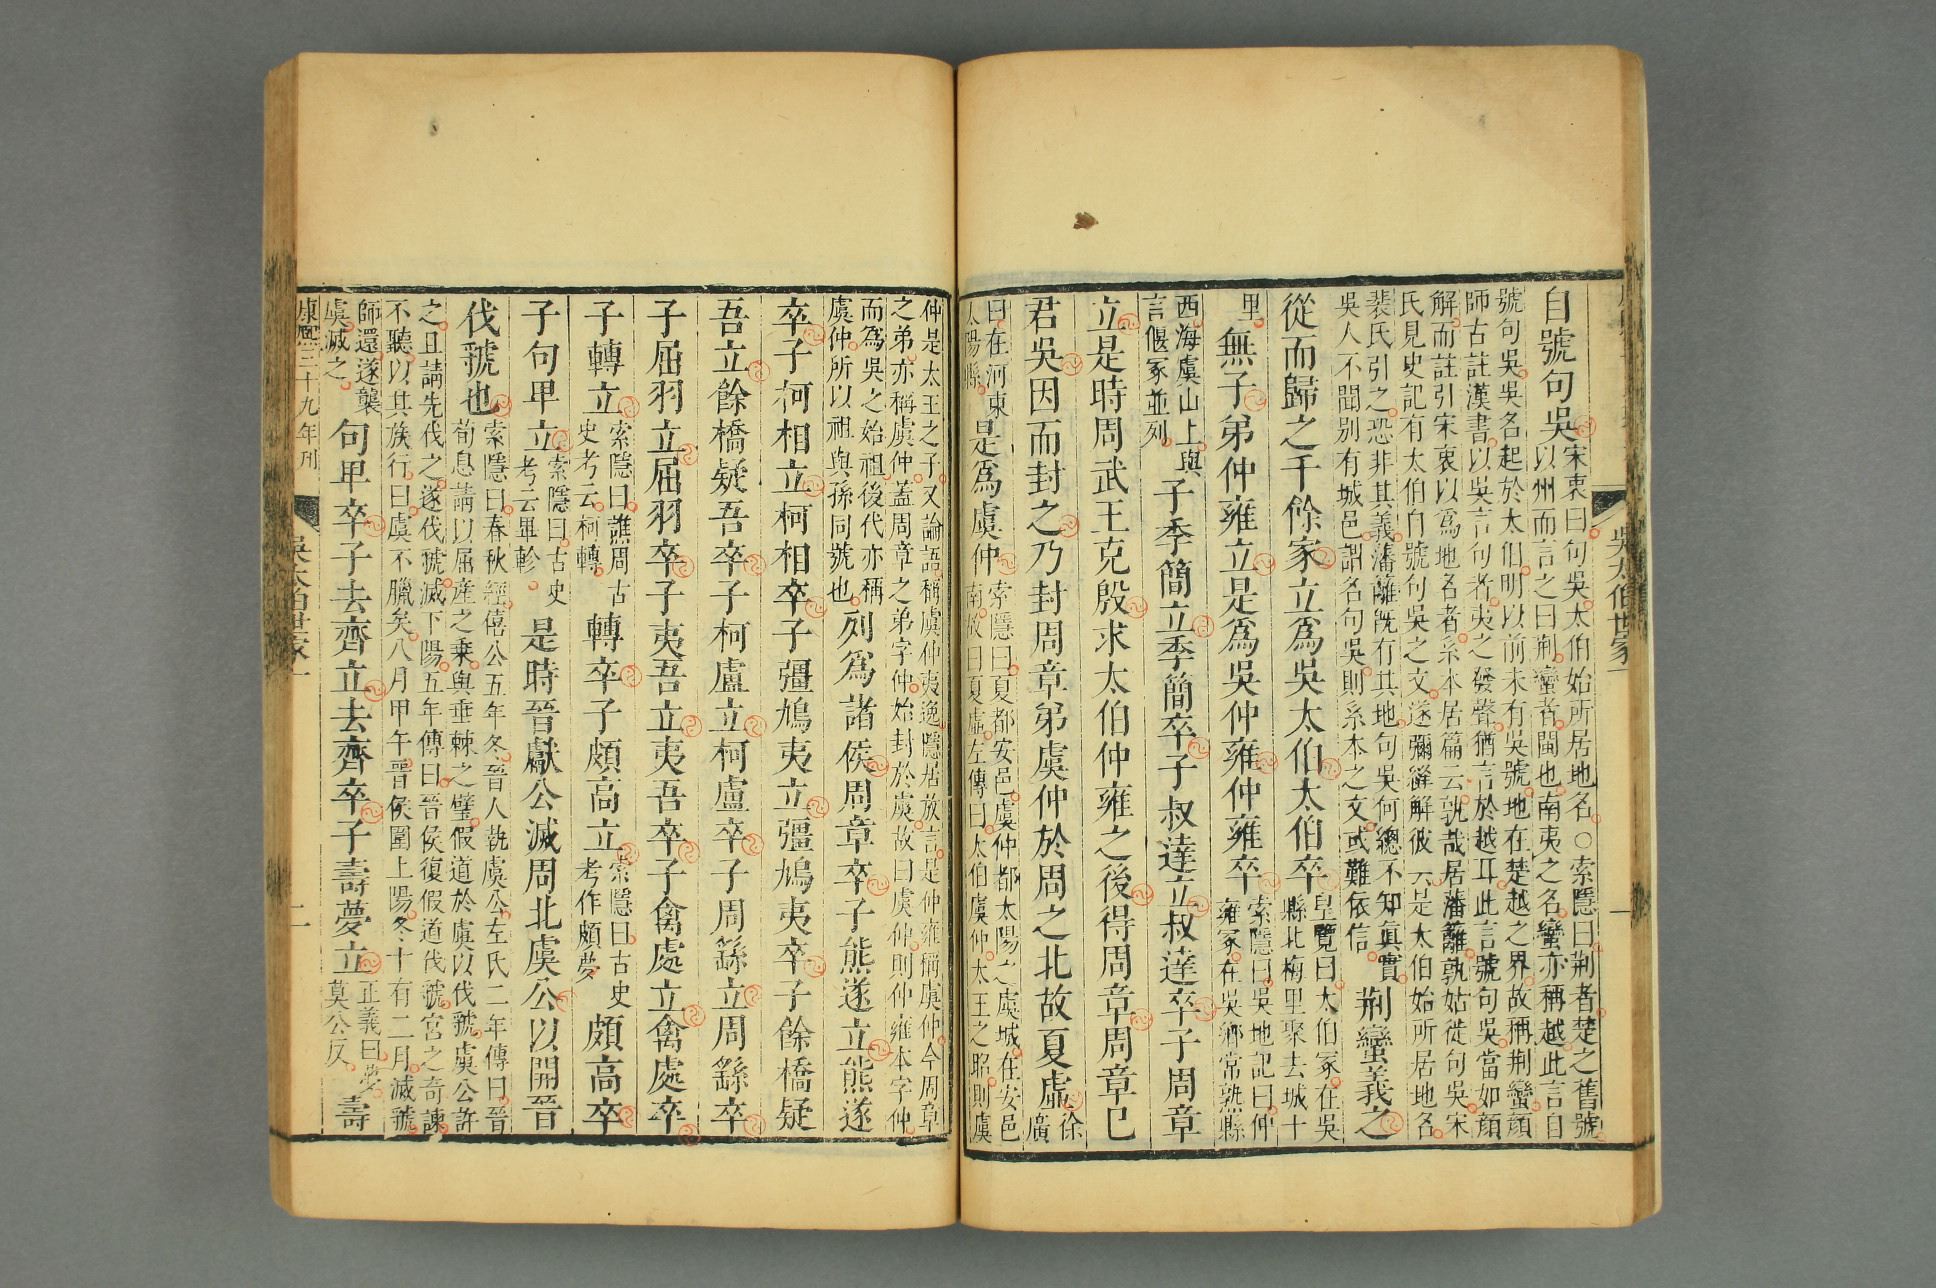 自號句吳宋衷曰句吳太伯始所居地名○索隱曰荆者楚之舊號
以州而言之曰荆蠻者閩也南夷之名蠻亦稱越此言自
號句吳吳名起於太伯明以前未有吳號地在楚越之界故稱荆蠻顔
師古註漢書以吳言句者夷之發聲猶言於越耳此言號句吳當如顔
解而註引宋衷以爲地名者系本居篇云孰哉居藩籬孰姑徙句吳宋
氏見史記有太伯自號句吳之文遂彌縫解彼云是太伯始所居地名
裴氏引之恐非其義藩籬旣有其地句吳何總不知眞實
吳人不聞别有城邑謂名句吳則系本之文或難依信荆蠻義之
從而歸之千餘家立爲吳太伯太伯卒皇覽曰太伯冢在吳
縣北梅里聚去城十
里無子弟仲雍立是爲吳仲雍仲雍卒索隱曰吳地記曰仲
雍冢在吳鄉常熟縣
西海虞山上與
言偃冢並列子季簡立季簡卒子叔達立叔達卒子周章
立是時周武王克殷求太伯仲雍之後得周章周章已
君吳因而封之乃封周章弟虞仲於周之北故夏虛徐
廣
曰在河東
太陽縣是爲虞仲索隱曰夏都安邑虞仲都太陽之虞城在安邑
南故曰夏虛左傳曰太伯虞仲太王之昭則虞
吳太伯世家一
一
仲是太王之子又論語稱虞仲夷逸隱居放言是仲雍稱虞仲今周章
之弟亦稱虞仲蓋周章之弟字仲始封於虞故曰虞仲則仲雍本字仲
而爲吳之始祖後代亦稱
虞仲所以祖與孫同號也列爲諸侯周章卒子熊遂立熊遂
卒子柯相立柯相卒子彊鳩夷立彊鳩夷卒子餘橋疑
吾立餘橋疑吾卒子柯盧立柯盧卒子周繇立周繇卒
子屈羽立屈羽卒子夷吾立夷吾卒子禽處立禽處卒
子轉立索隱曰譙周古
史考云柯轉轉卒子頗高立索隱曰古史
考作頗夢頗高卒
子句卑立索隱曰古史
考云畢軫是時晉獻公滅周北虞公以開晉
伐虢也索隱曰春秋經僖公五年冬晉人執虞公左氏二年傳曰晉
荀息請以屈產之乘與垂棘之璧假道於虞以伐虢虞公許
之且請先伐之遂伐虢滅下陽五年傳曰晉侯復假道伐虢宮之奇諫
不聽以其族行曰虞不臘矣八月甲午晉侯圍上陽冬十有二月滅虢
師還遂襲
虞滅之句卑卒子去齊立去齊卒子壽夢立正義曰夢
莫公反壽
康熙三十九年刊
吳太伯世家一
二